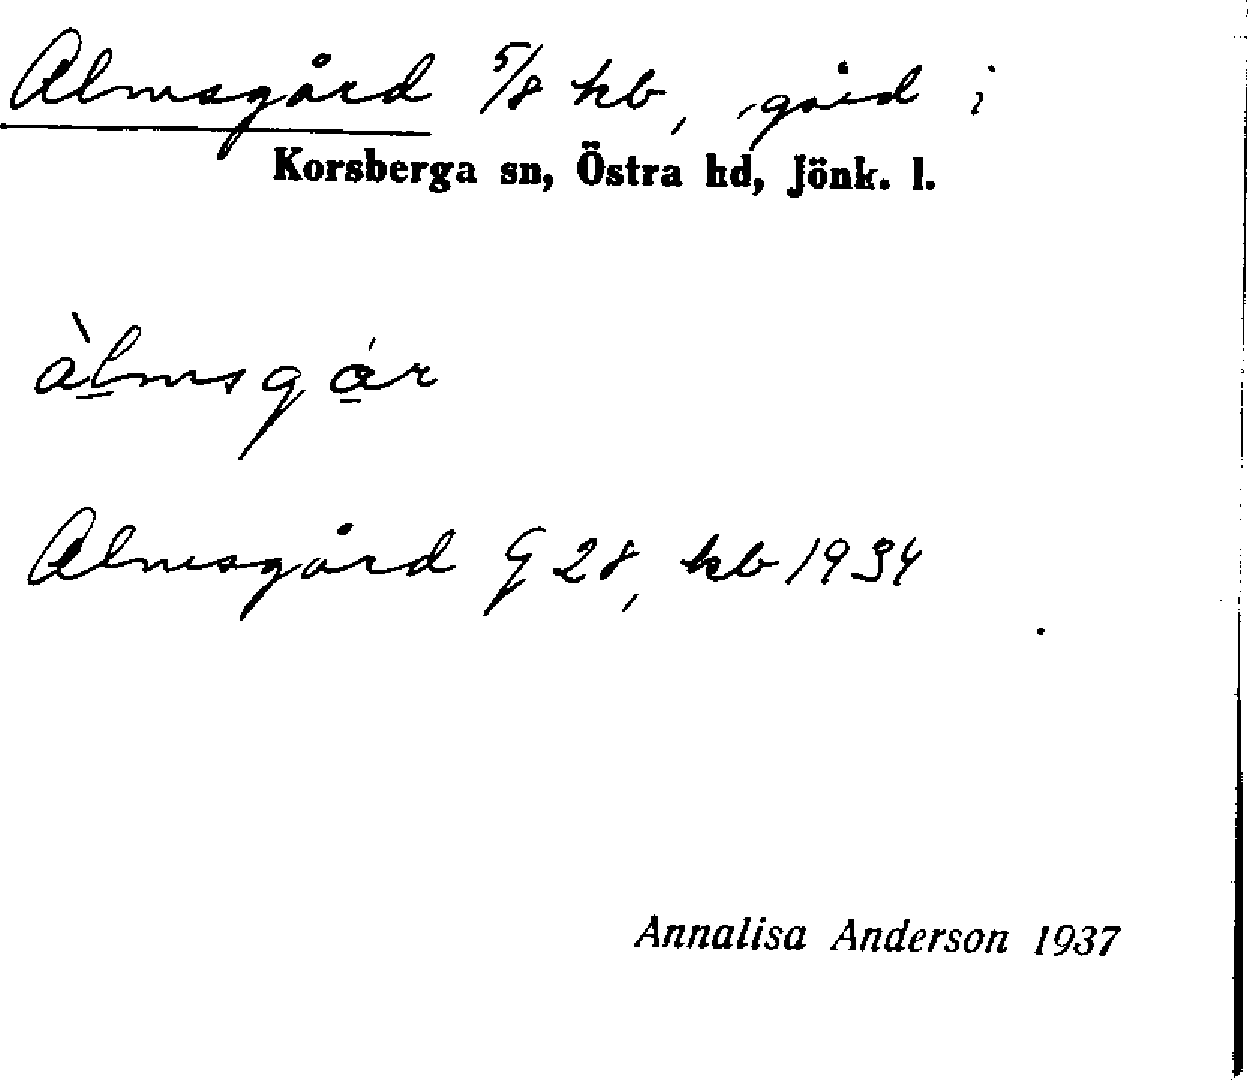 Almsgård 5/8 kb, gård i
Korsberga sn, Östra hd, Jönk. l.
àlmsgár
Almsgård G 28, kb 1934
Annalisa Anderson 1937